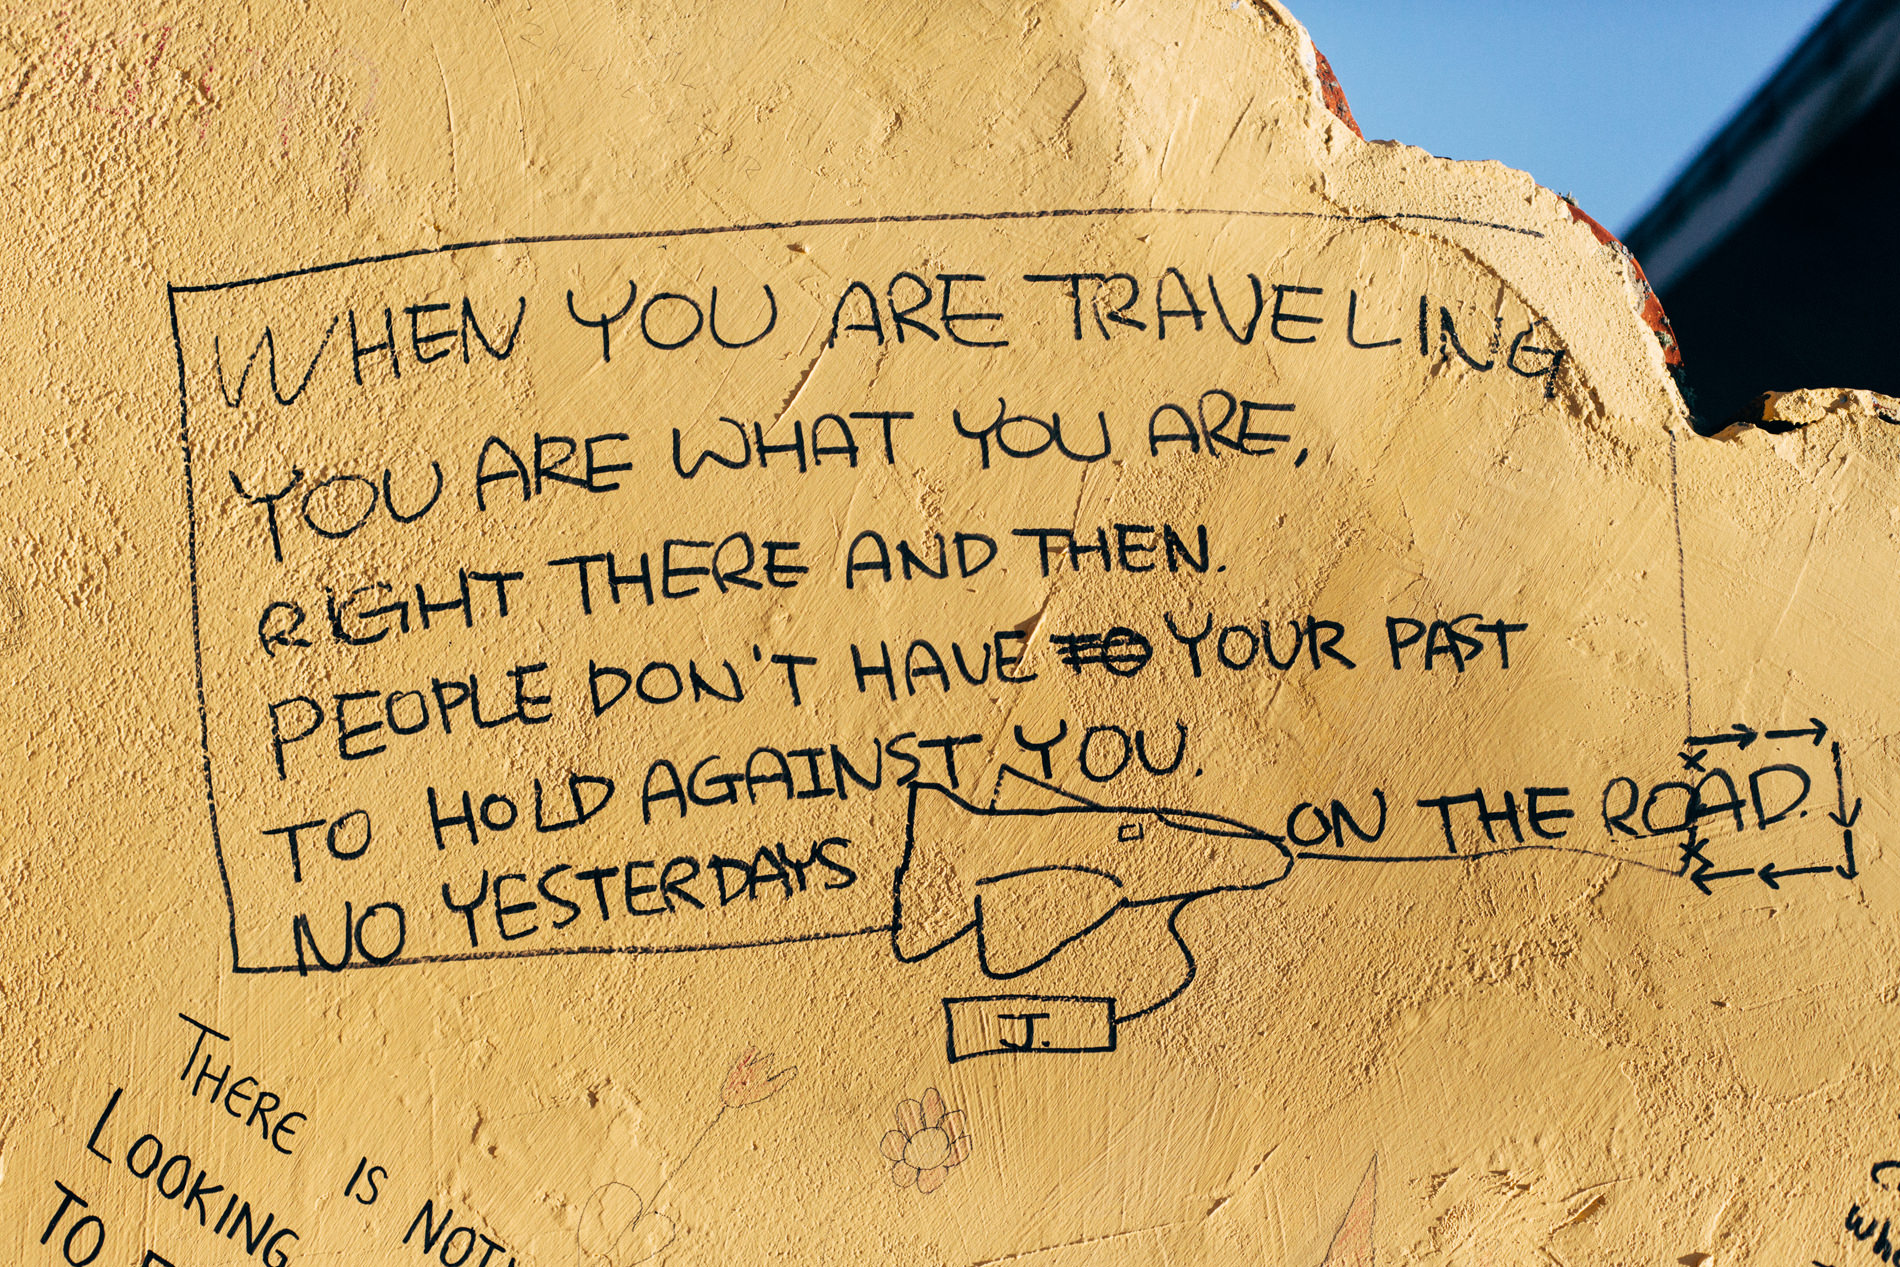 WHEN YOU ARE TRAVELING
YOU ARE WHAT YOU ARE,
RIGHT THERE AND THEN.
PEOPLE DON'T HAVE TO YOUR PAST
TO HOLD AGAINST YOU.
NO YESTERDAYS ON THE ROAD.
J.
THERE IS
LOOKING
TO